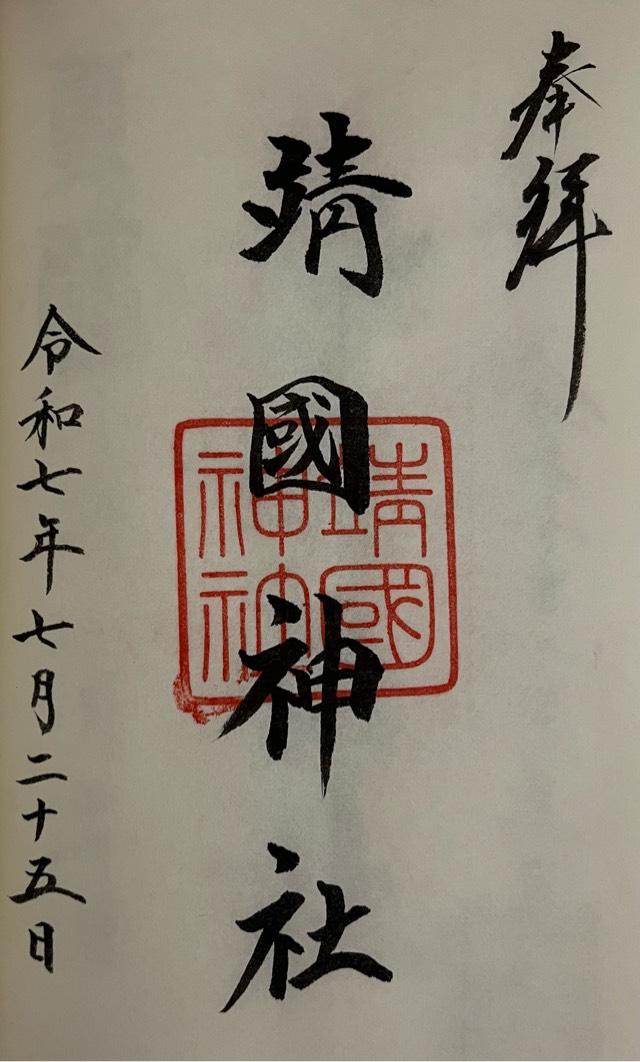 奉拝
靖國神社
靖國神社
令和七年七月二十五日